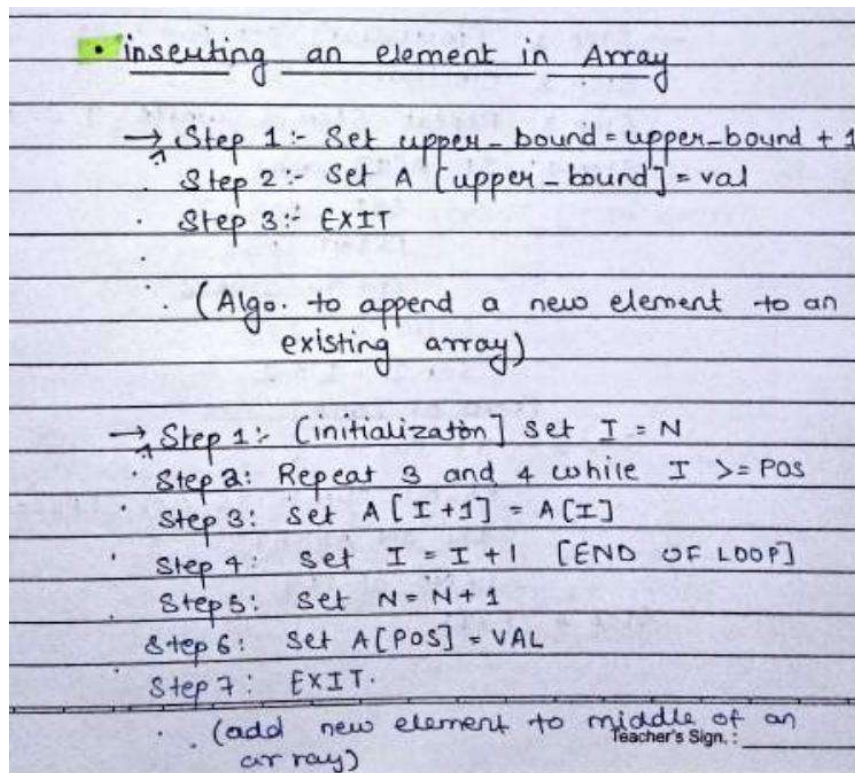 • inserting an element in Array
→ Step 1:- Set upper_bound = upper_bound + 1
Step 2:- Set A [upper_bound] = val
Step 3:- EXIT
(Algo. to append a new element to an
existing array)
→ Step 1:- [initializaton] Set I = N
Step 2: Repeat 3 and 4 while I >= POS
Step 3: Set A[I+1] = A[I]
Step 4: Set I = I + 1 [END OF LOOP]
Step 5: Set N = N + 1
Step 6: Set A[POS] = VAL
Step 7: EXIT.
(add new element to middle of an
Teacher's Sign. :
array)